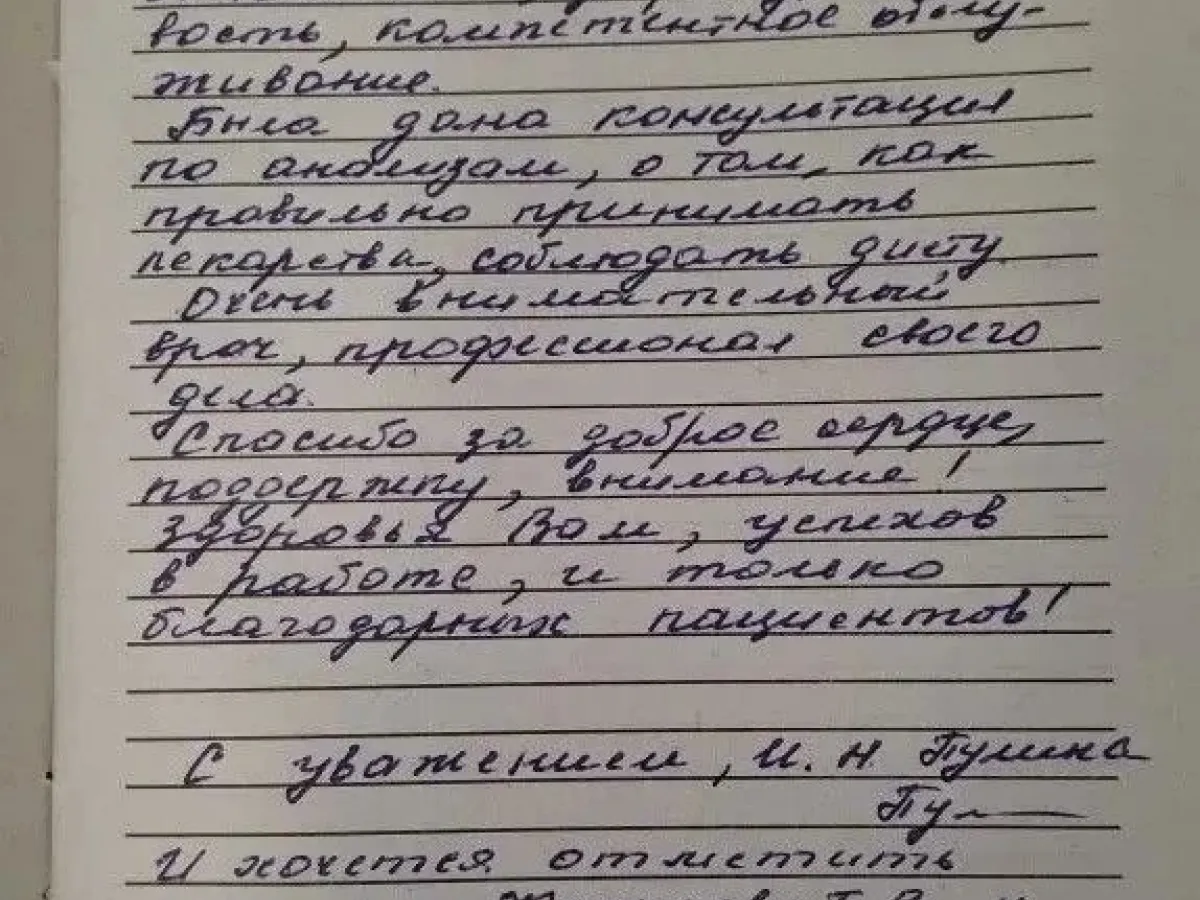 вость, компетентное обслу-
живание.
Была дана консультация
по анализам, о том, как
правильно принимать
лекарства, соблюдать диету.
Очень внимательный
врач, профессионал своего
дела.
Спасибо за доброе сердце,
поддержку, внимание!
Здоровья Вам, успехов
в работе, и только
благодарных пациентов!
С уважением, И. Н. Пулина
Пу
И хочется отметить